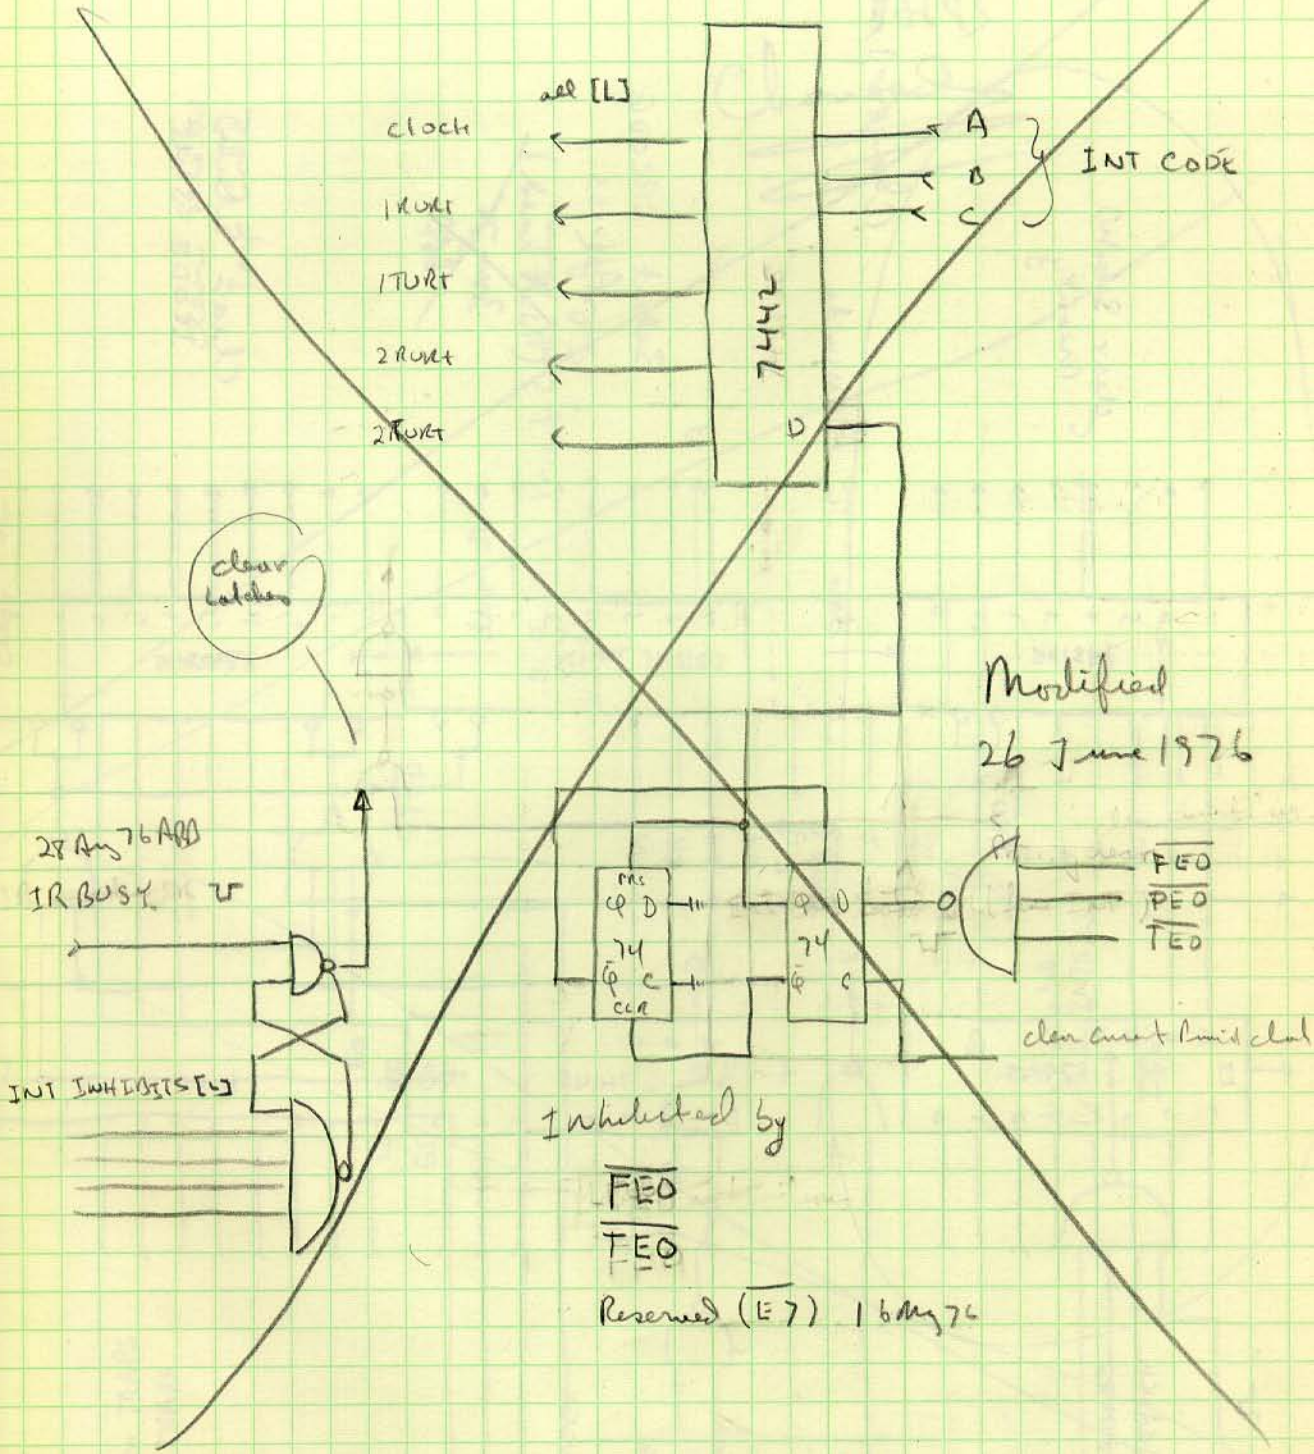 all [L]
clock
1RURT
1TURT
2RURT
2TURT
7442
A
B
C
INT CODE
D
clear
latches
Modified
26 June 1976
28 Aug 76 ADD
IR BUSY
PRS
Q D
74
Q̅ C
CLR
Q D
74
Q̅ C
F̅E̅O̅
P̅E̅O̅
T̅E̅O̅
clear current
INT INHIBITS [L]
Inhibited by
F̅E̅O̅
T̅E̅O̅
Reserved (E̅7̅) 16 Aug 76